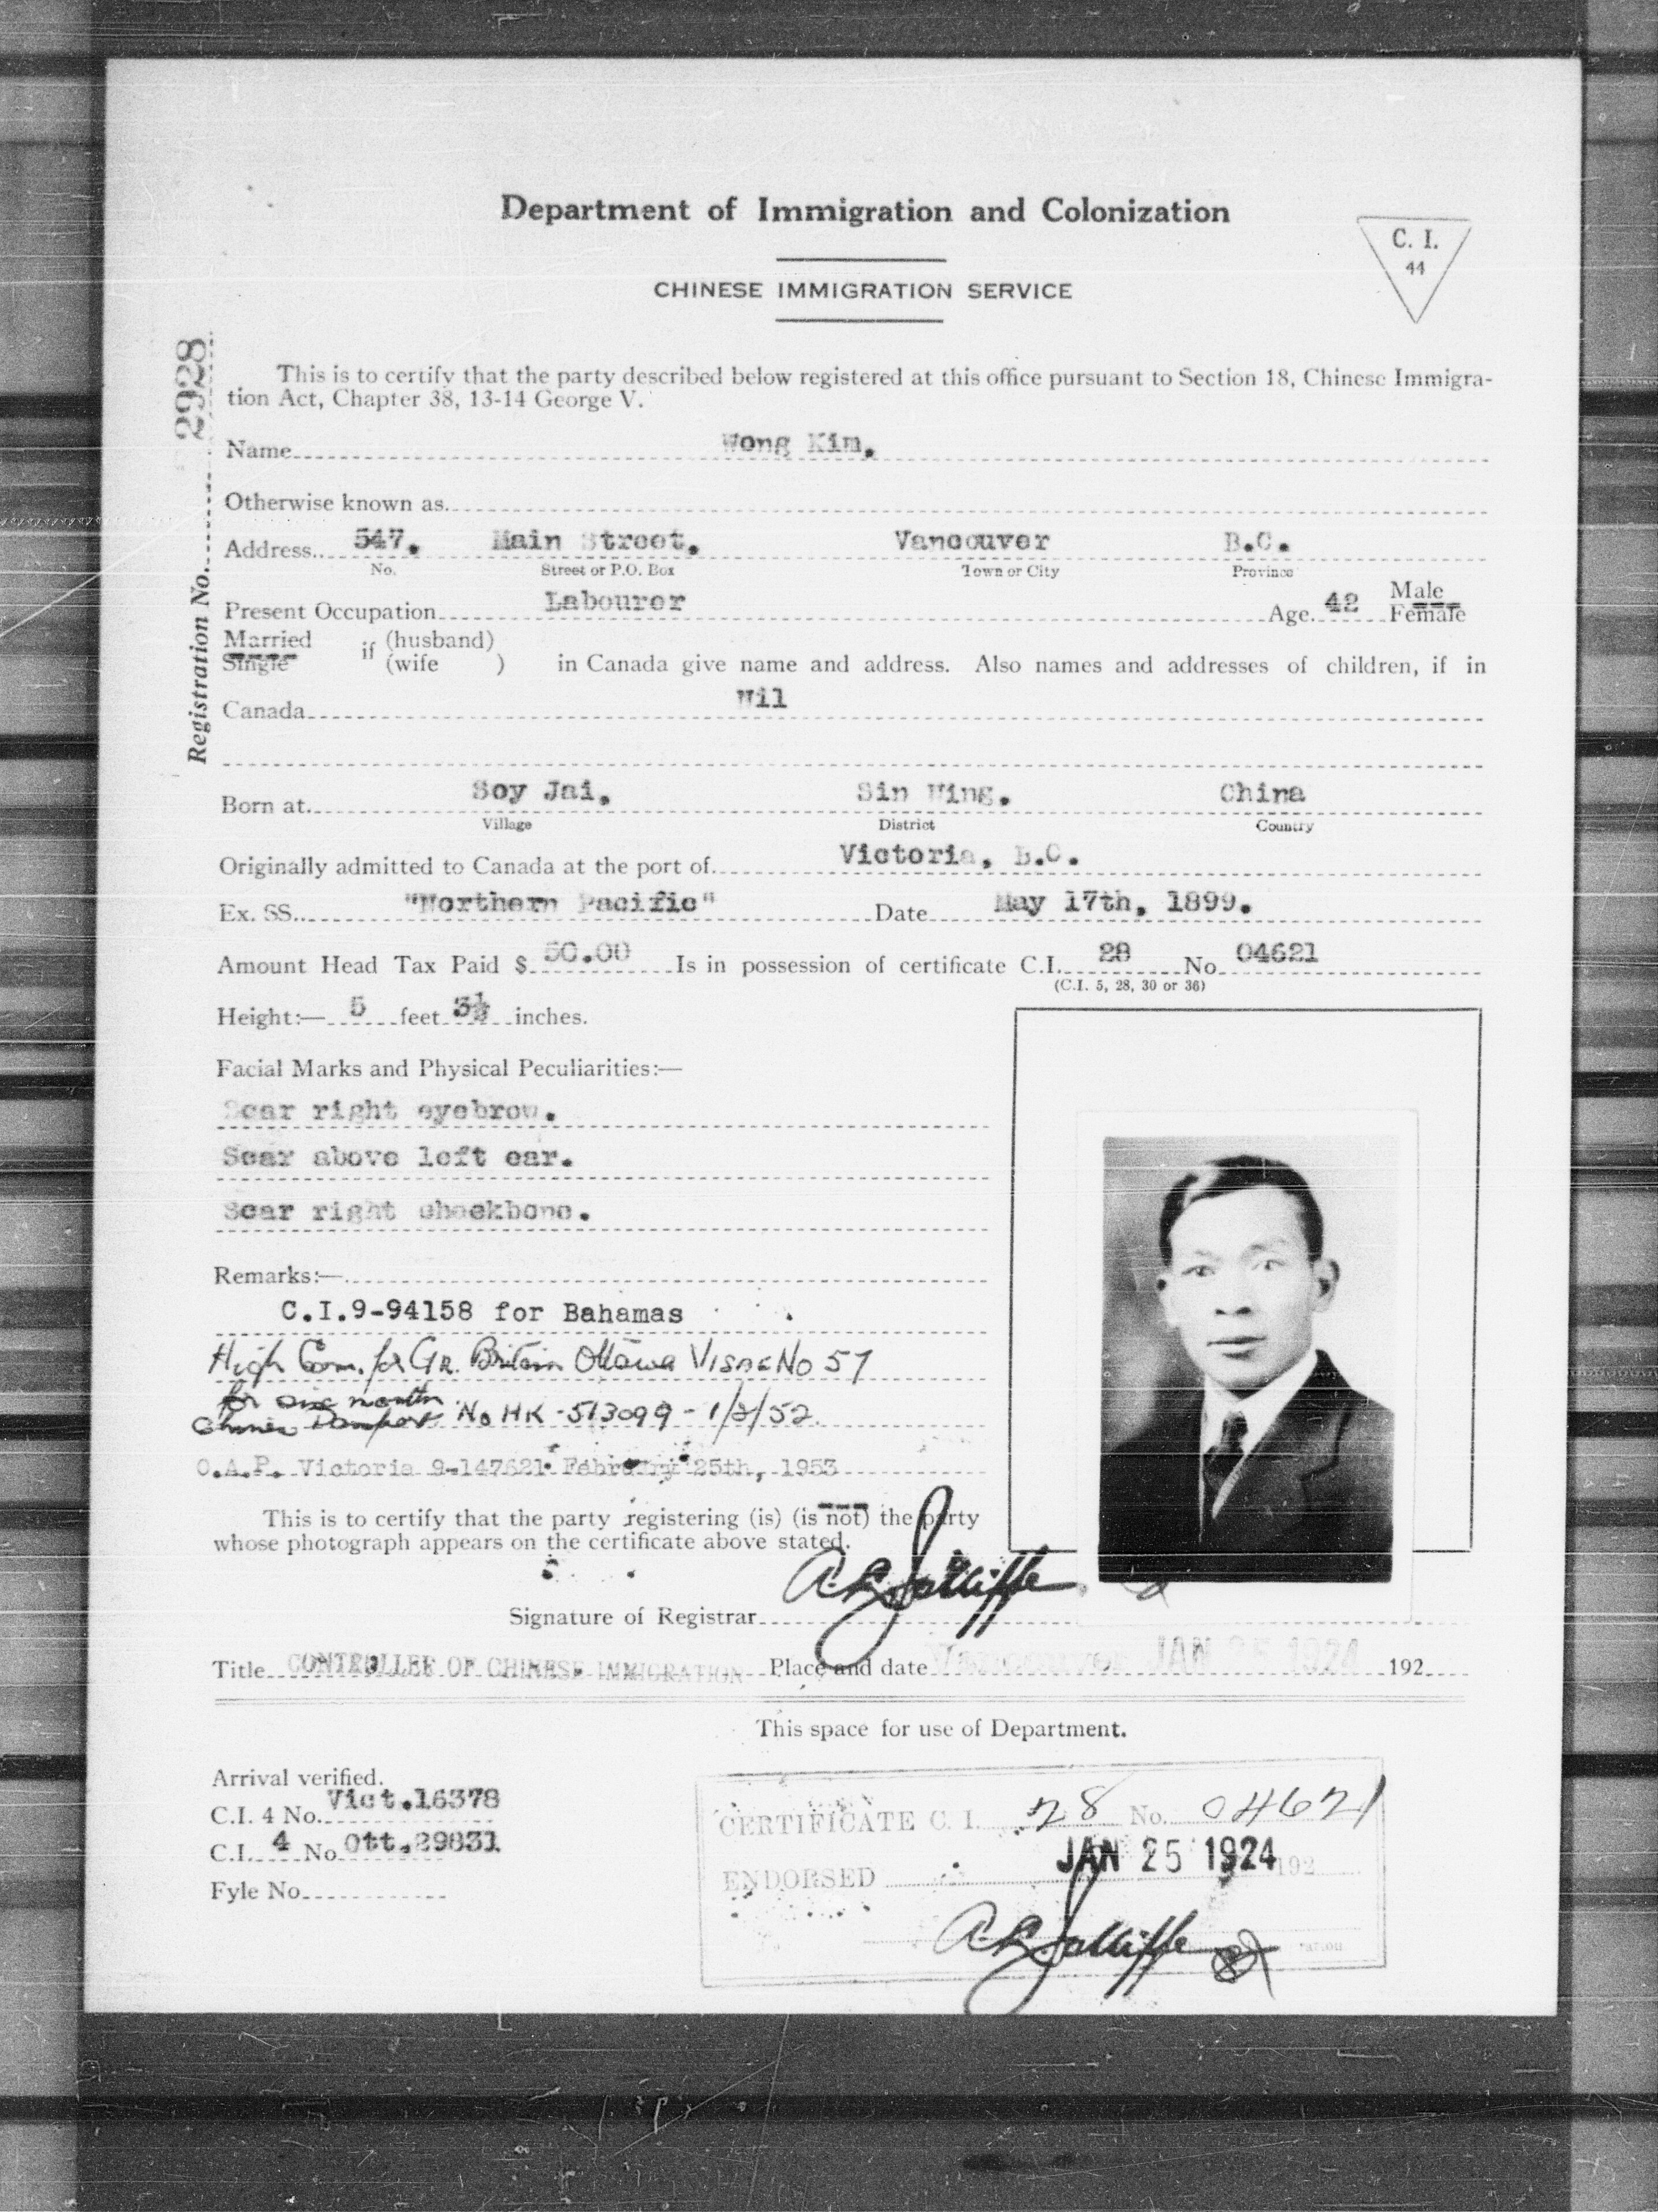 Department of Immigration and Colonization
C. I.
44
CHINESE IMMIGRATION SERVICE
Registration No. 29928
This is to certify that the party described below registered at this office pursuant to Section 18, Chinese Immigra-
tion Act, Chapter 38, 13-14 George V.
Name Wong Kim.
Otherwise known as
Address 547. Main Street. Vancouver B.C.
No. Street or P.O. Box Town or City Province
Present Occupation Labourer Age 42 Male
Female
Married if (husband)
Single (wife ) in Canada give name and address. Also names and addresses of children, if in
Canada Nil
Born at Soy Jai. Sin Ning. China
Village District Country
Originally admitted to Canada at the port of Victoria, B.C.
Ex. SS. "Northern Pacific" Date May 17th, 1899.
Amount Head Tax Paid $ 50.00 Is in possession of certificate C.I. 28 No. 04621
(C.I. 5, 28, 30 or 36)
Height:— 5 feet 3½ inches.
Facial Marks and Physical Peculiarities:—
Scar right eyebrow.
Scar above left ear.
Scar right cheekbone.
Remarks:—
C.I.9-94158 for Bahamas
High Com. for Gr. Britain Ottawa Visae No 57
for six months
Chinese Passport No HK-513099 - 1/2/52.
O.A.P. Victoria 9-147621 February 25th, 1953
This is to certify that the party registering (is) (is not) the party
whose photograph appears on the certificate above stated.
Signature of Registrar A L Jolliffe
Title CONTROLLER OF CHINESE IMMIGRATION Place and date Vancouver JAN 25 1924 192
This space for use of Department.
Arrival verified.
C.I. 4 No. Vict.16378
C.I. 4 No. Ott.29831
Fyle No.
CERTIFICATE C. I. 28 No. 04621
ENDORSED JAN 25 1924 192
A L Jolliffe